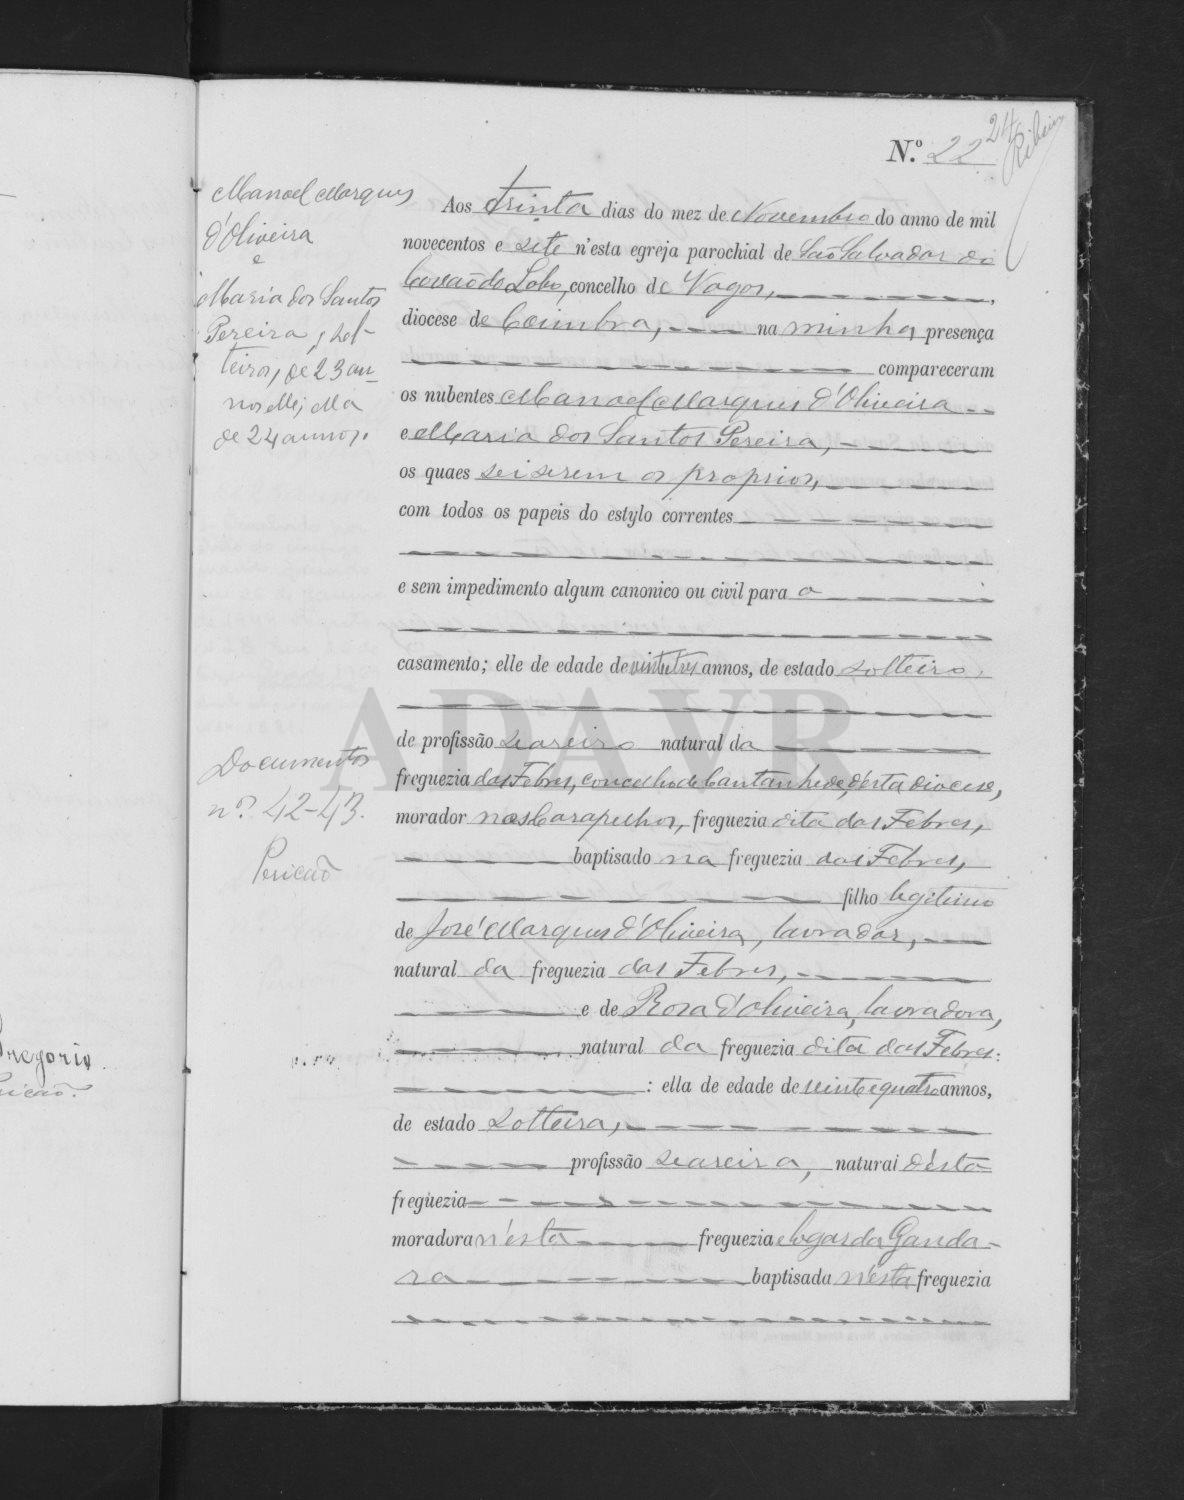 N.º 22
24
Ribeiro
Manoel Marques
d'Oliveira
e
Maria dos Santos
Pereira, sol-
teiros, de 23 an-
nos elle; ella
de 24 annos.
Aos trinta dias do mez de Novembro do anno de mil
novecentos e sete n'esta egreja parochial de São Salvador do
Covão do Lobo, concelho de Vagos,
diocese de Coimbra, na minha presença
compareceram
os nubentes Manoel Marques d'Oliveira
e Maria dos Santos Pereira,
os quaes sei serem os proprios,
com todos os papeis do estylo correntes
e sem impedimento algum canonico ou civil para o
casamento; elle de edade de vinte tres annos, de estado solteiro,
ADAVR
de profissão seareiro natural da
freguezia das Febres, concelho de Cantanhede, d'esta diocese,
morador nos Carapelhos, freguezia dita das Febres,
baptisado na freguezia das Febres,
filho legitimo
de José Marques d'Oliveira, lavrador,
natural da freguezia das Febres,
e de Rosa d'Oliveira, lavradora,
natural da freguezia dita das Febres:
: ella de edade de vinte e quatro annos,
de estado solteira,
profissão seareira, natural d'esta
freguezia
moradora n'esta freguezia e logar da Ganda-
ra baptisada n'esta freguezia
Documentos
nos. 42-43.
Gregorio